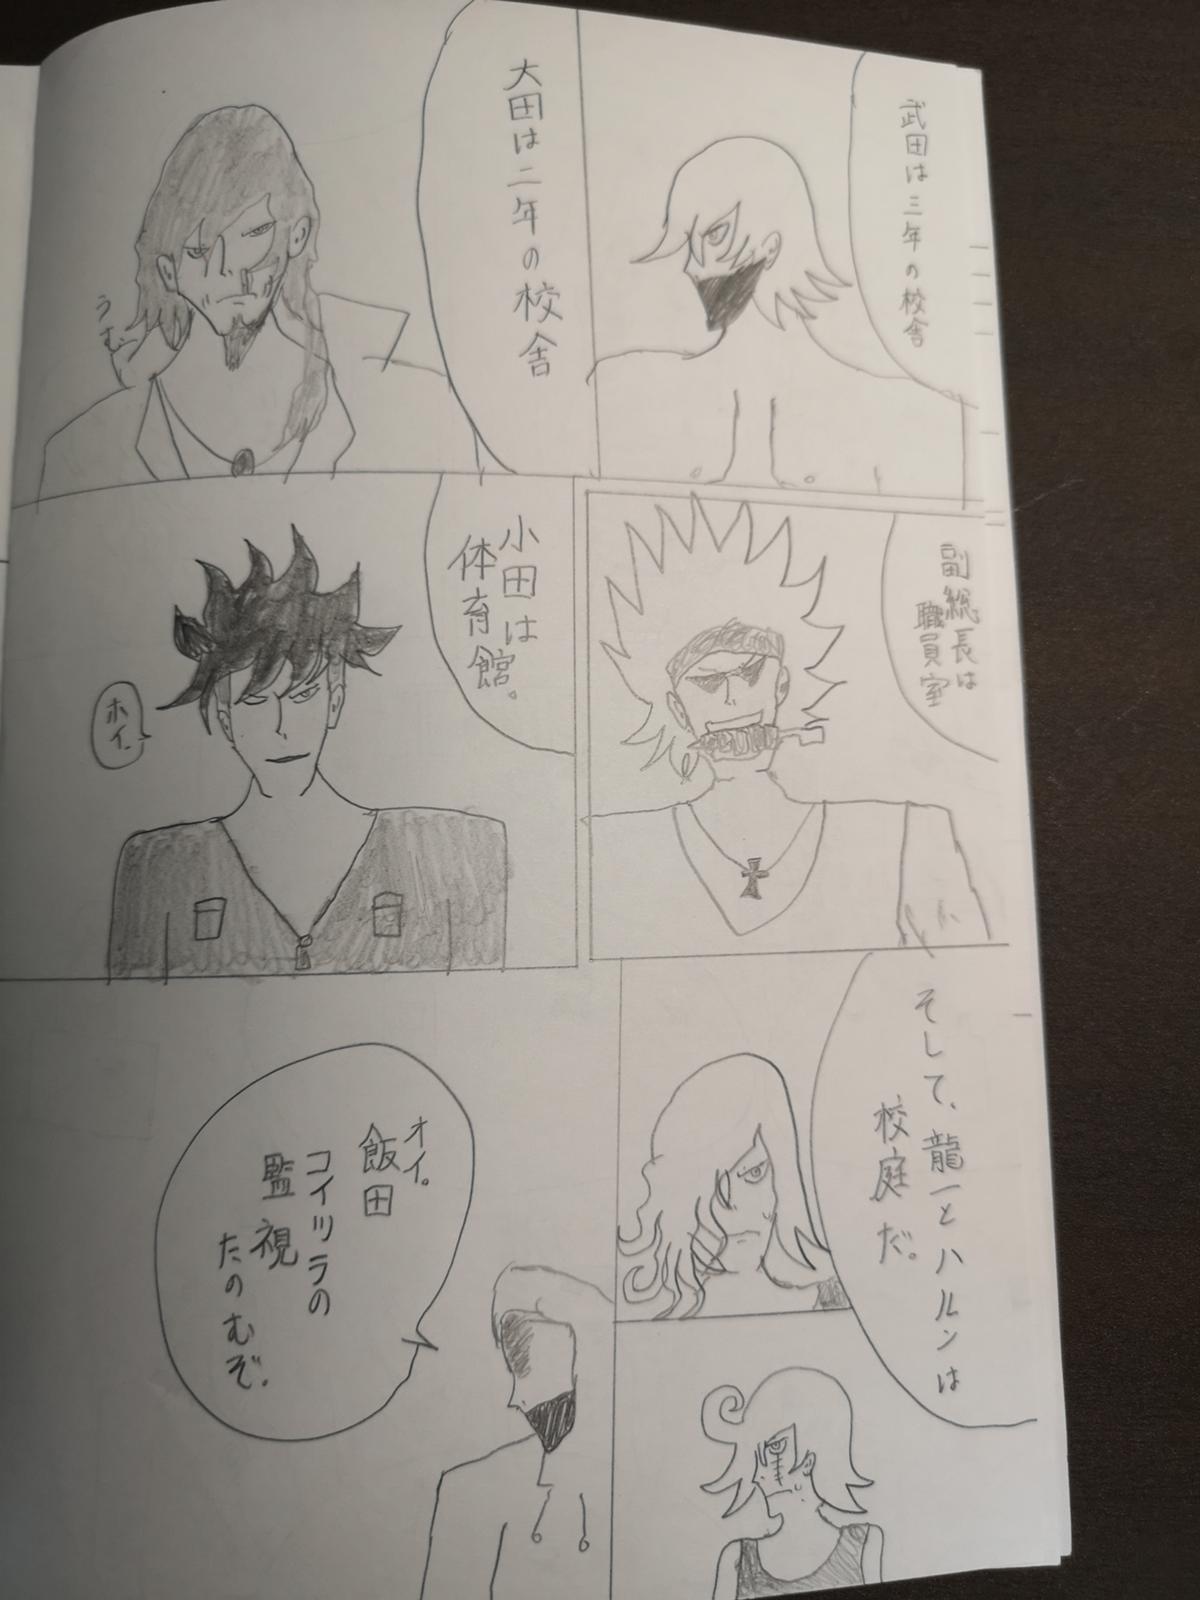 武田は三年の校舎
大田は二年の校舎
うむ
副総長は
職員室
小田は
体育館。
ホイ、
そして、龍一とハルンは
校庭だ。
オイ。
飯田
コイツラの
監視
たのむぞ。